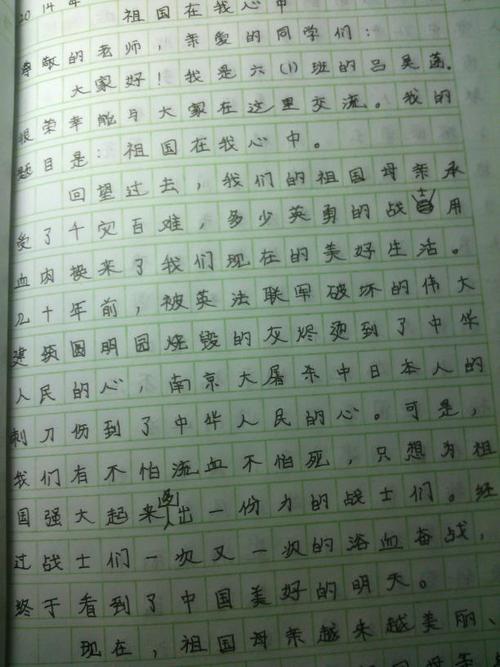 2014年 祖国在我心中
尊敬的老师,亲爱的同学们:
大家好!我是六(1)班的吕昊菡。
很荣幸能与大家在这里交流。我的
题目是:祖国在我心中。
回望过去,我们的祖国母亲承
受了千灾百难,多少英勇的战士用
血肉换来了我们现在的美好生活。
几十年前,被英法联军破坏的伟大
建筑圆明园烧毁的灰烬烫到了中华
人民的心,南京大屠杀中日本人的
刺刀伤到了中华人民的心。可是,
我们有不怕流血不怕死,只想为祖
国强大起来贡出一份力的战士们。经
过战士们一次又一次的浴血奋战,
终于看到了中国美好的明天。
现在,祖国母亲越来越美丽、